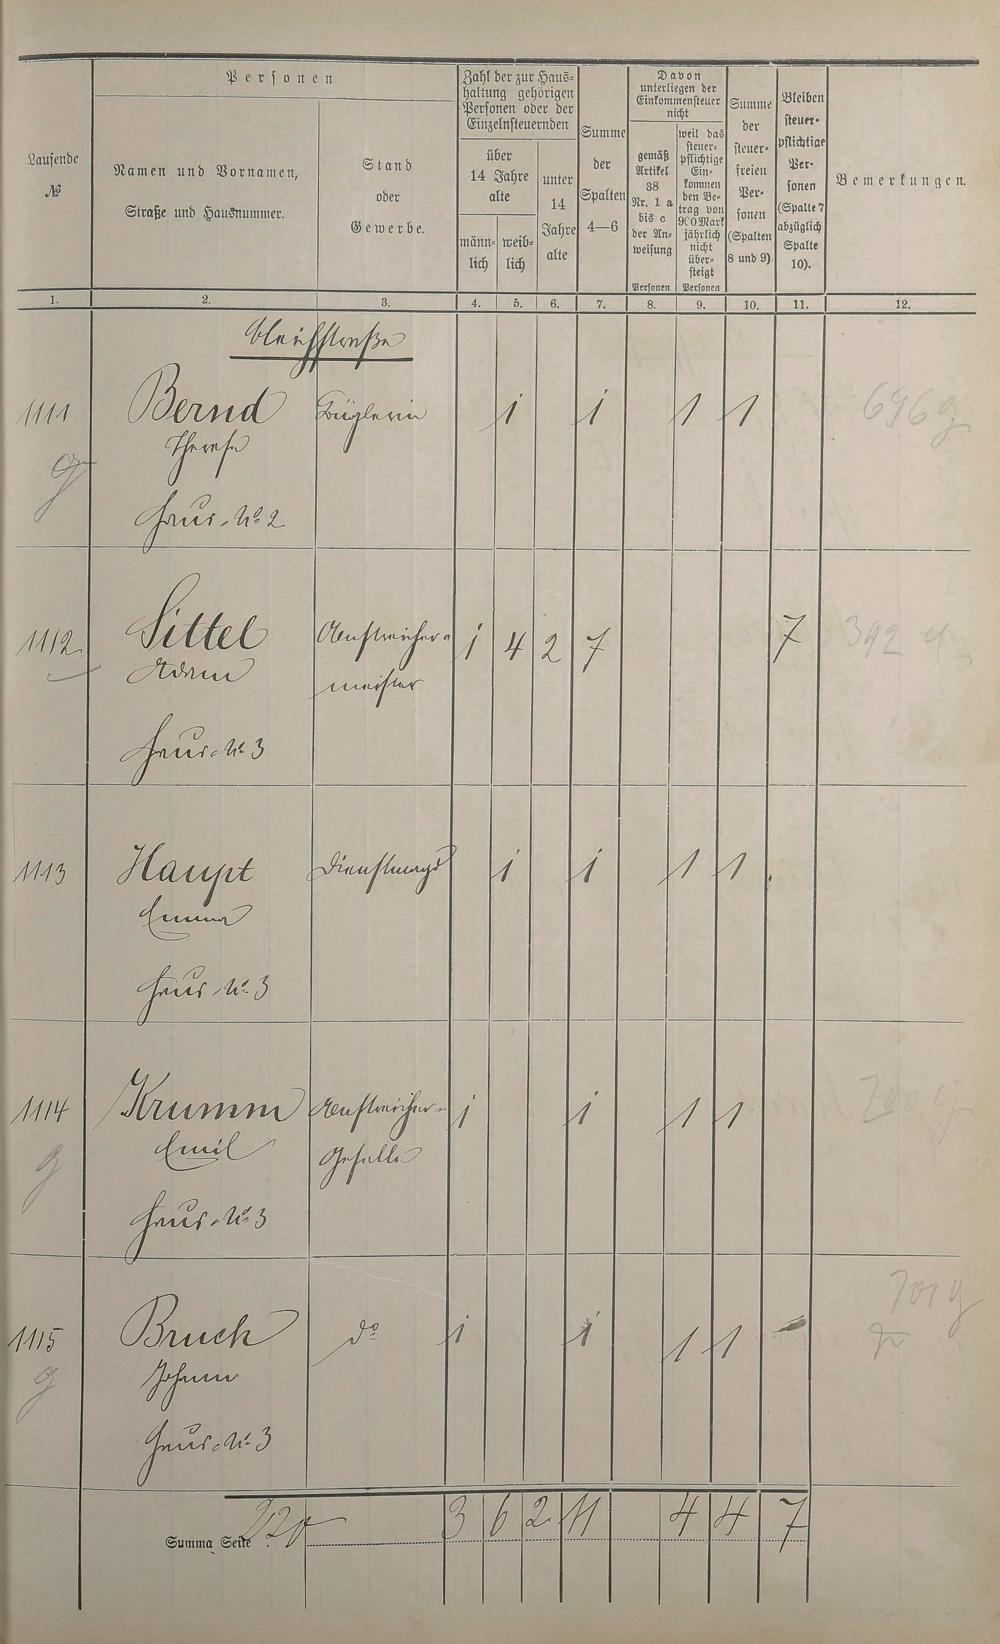 Laufende
№
Personen
Namen und Vornamen,
Straße und Hausnummer.
Stand
oder
Gewerbe.
Zahl der zur Haus-
haltung gehörigen
Personen oder der
Einzelnsteuernden
über
14 Jahre
alte
männ-
lich
weib-
lich
unter
14
Jahre
alte
Summe
der
Spalten
4—6
Davon
unterliegen der
Einkommensteuer
nicht
gemäß
Artikel
38
Nr. 1 a
bis c
der An-
weisung
Personen
weil das
steuer-
pflichtige
Ein-
kommen
den Be-
trag von
900 Mark
jährlich
nicht
über-
steigt
Personen
Summe
der
steuer-
freien
Per-
sonen
(Spalten
8 und 9).
Bleiben
steuer-
pflichtige
Per-
sonen
(Spalte 7
abzüglich
Spalte
10).
Bemerkungen.
1. 2. 3. 4. 5. 6. 7. 8. 9. 10. 11. 12.
Bleichstraße
1111 Bernd Büglerin 1 1 1 1 696 g
g Therese
Haus-No 2
1112 Sittel Anstreicher- 1 4 2 7 7 392
Adam meister
Haus-No 3
1113 Haupt Dienstmagd 1 1 1 1
Emma
Haus-No 3
1114 Krumm Anstreicher- 1 1 1 1
g Emil Geselle
Haus-No 3
1115 Bruch do 1 1 1 1 - 701 g
g Johann
Haus-No 3
Summa Seite 220 3 6 2 11 4 4 7